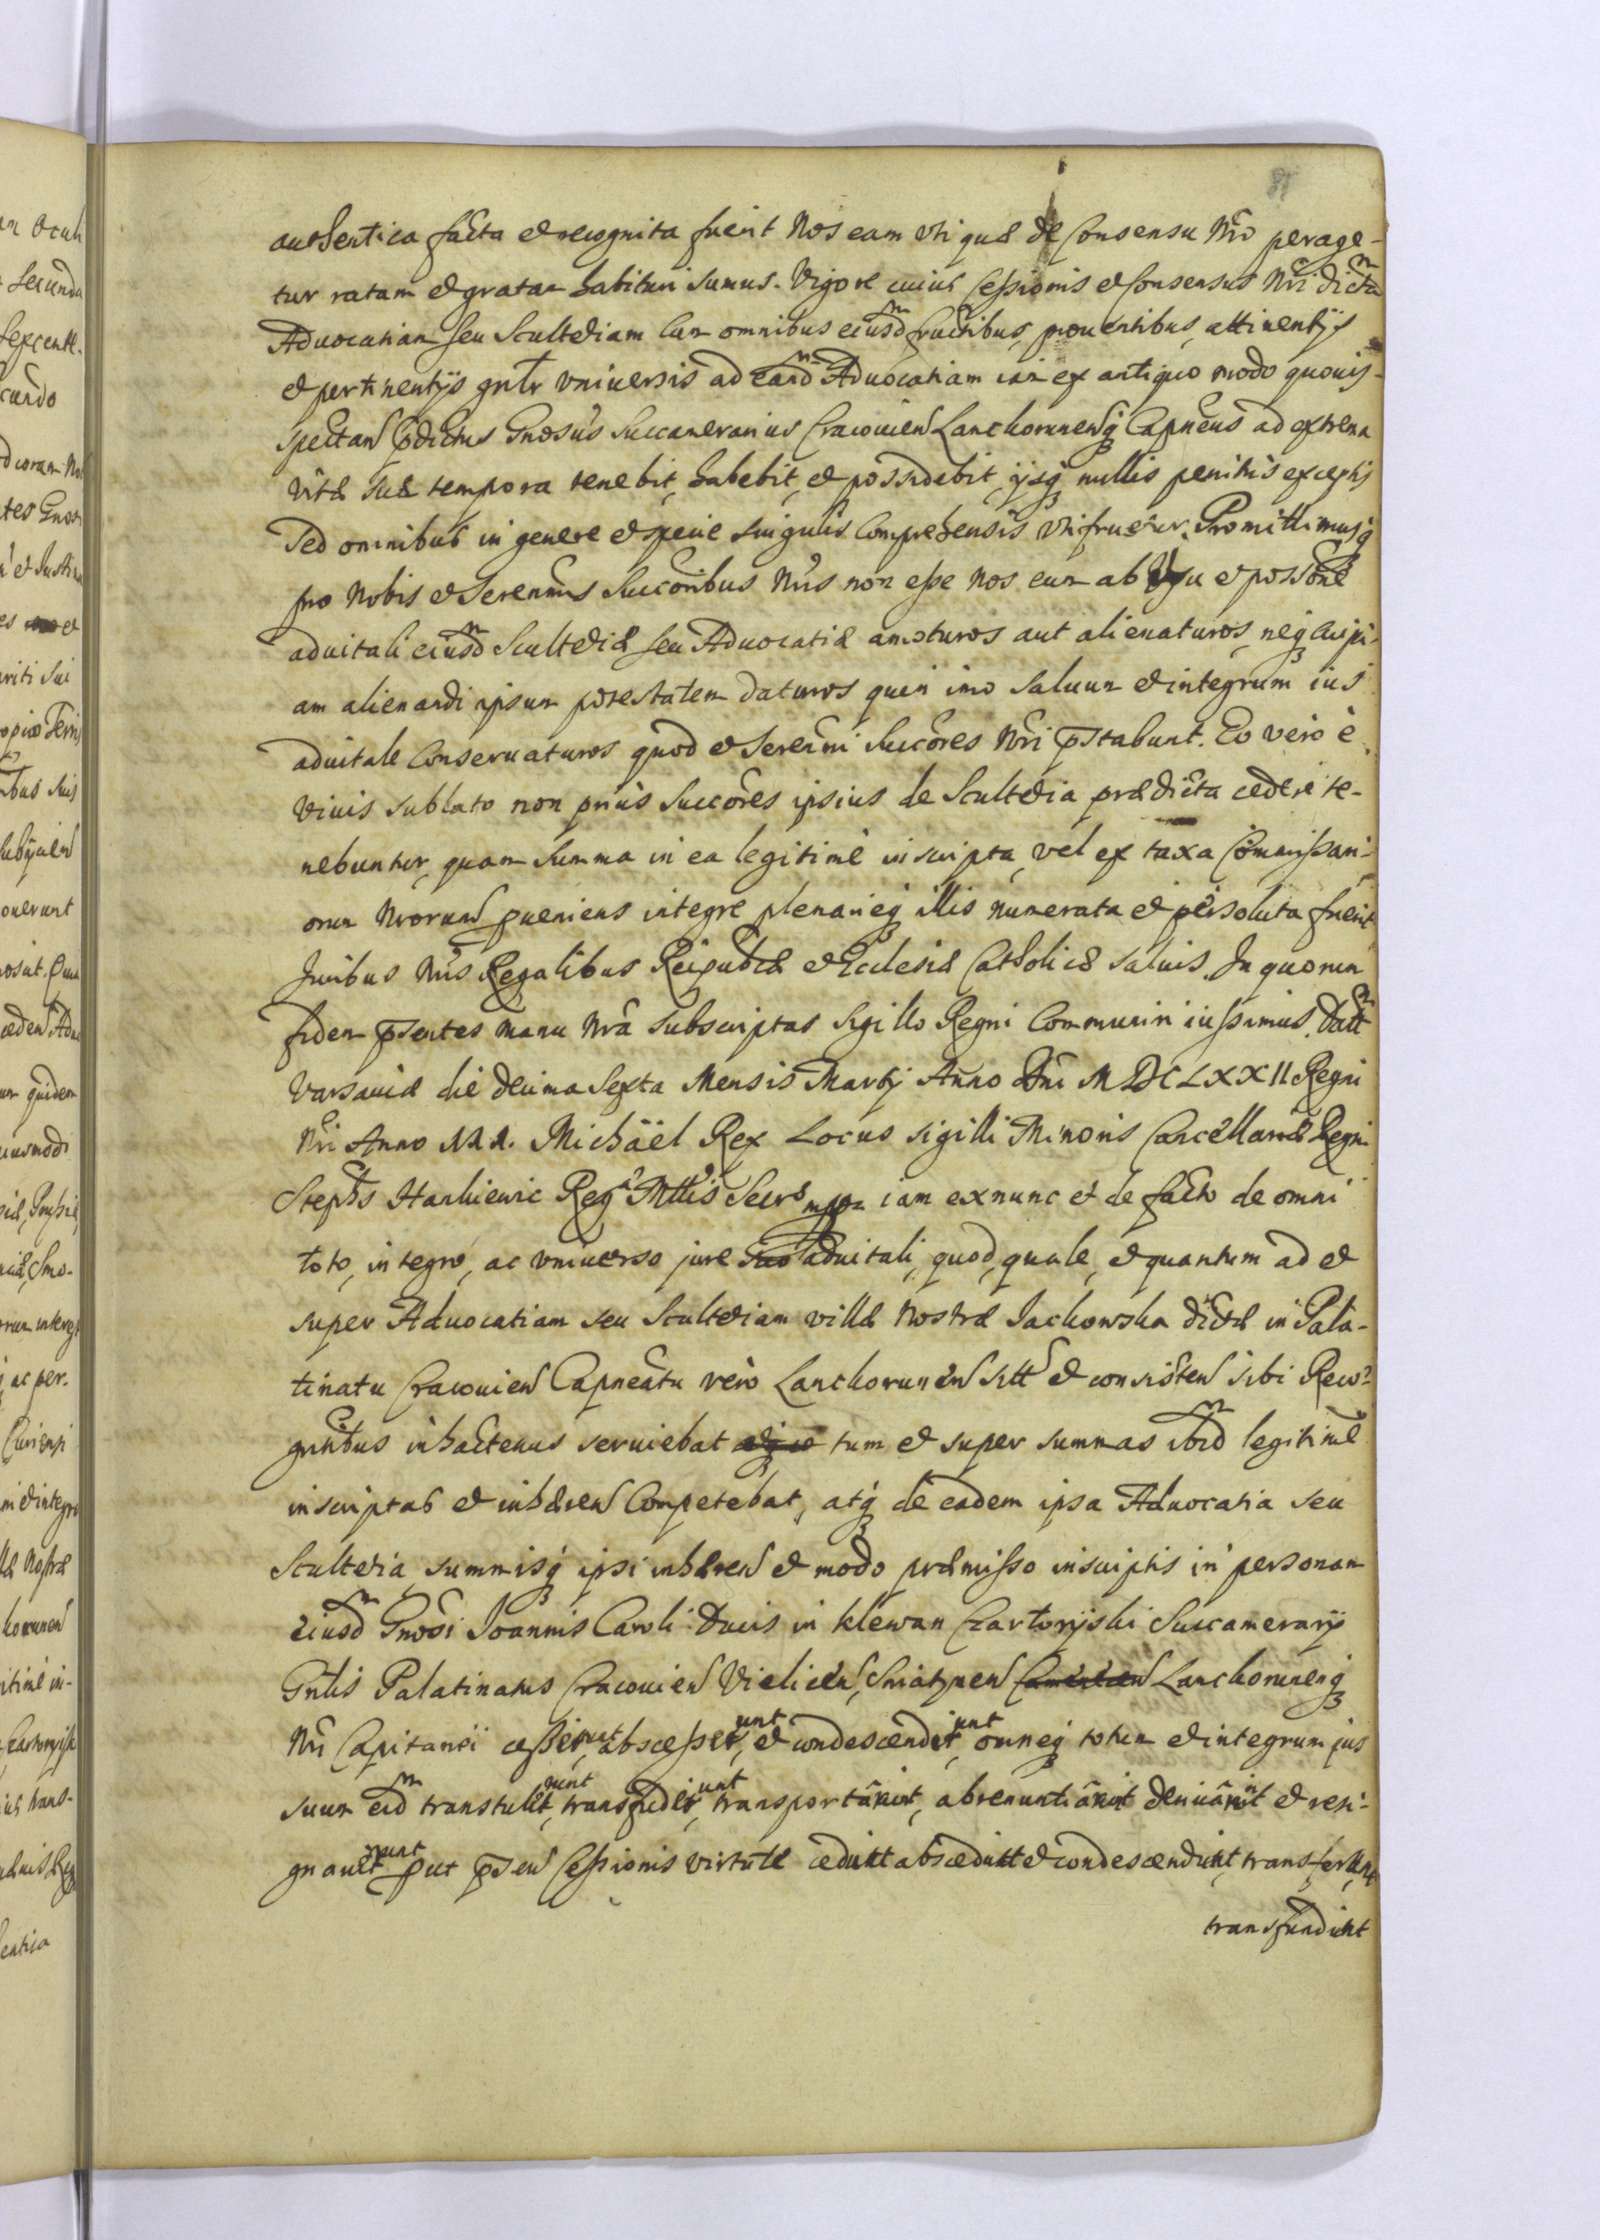 81
authentica facta et recognita fuerit Nos eam uti quæ de Consensu Nro perage-
tur ratam et gratam habituri sumus. Vigore cuius Cessionis et Consensus Nri dicta
Advocatiam seu Scultetiam Cum omnibus eiusd fructibus, proventibus, attinentijs
et pertinentijs gnlr vniuersis ad eand Advocatiam iam ex antiquo modo quouis
spectan pdictus Gnosus Succamerarius Cracouien Lanckorunensq Capneus ad extrema
vitæ suæ tempora tenebit, habebit, et possidebit, ijsq nullis penitus exceptis
Sed omnibus in genere et specie singulis Comprehensis utifruetur. Promittimusq
pro Nobis et Serenmis Succoribus Nris non esse Nos eum ab Usu et possone
aduitali eiusd Scultetiæ seu Aduocatiæ amoturos aut alienaturos, neq Cuipi-
am alienandi ipsum potestatem daturos quin imo saluum et integrum ius
aduitale Conseruaturos quod et Serenmi Succores Nri pstabunt. Eo vero è
viuis sublato non prius Succores ipsius de Scultetia prædicta cedere te-
nebuntur, quam Summa in ea legitimè inscripta, vel ex taxa Commissari-
orum Nrorum pueniens integre plenarieq illis numerata et persoluta fuerit
Juribus Nris Regalibus Reipublcæ et Ecclesiæ Catholicæ saluis. In quorum
fidem psentes manu Nra subscriptas Sigillo Regni Communiri iussimus. Datt
Varsauiæ die decima Sexta Mensis Martij Anno Dni MDCLXXII Regni
Nri Anno III. Michaël Rex Locus sigilli Minoris Cancellariæ Regni
Stephs Hankiewic Regæ Mttis Secrs mpp iam exnunc et de facto de omni
toto, integro, ac vniuerso jure suo aduitali, quod, quale, et quantum ad et
super Aduocatiam seu Scultetiam villæ Nostræ Jachowska dictæ in Pala-
tinatu Cracouien Capneatu vero Lanckorunen sitt et consisten sibi Reco-
gntibus inhactenus seruiebat tum et super summas ibid legitimè
inscriptas et inhæren Competebat, atq de eadem ipsa Aduocatia seu
Scultetia, summisq ipsi inhæren et modo præmisso inscriptis in personam
eiusd Gnosi Joannis Caroli Ducis in Klewan Czartoryski Succamerarij
Gnlis Palatinatus Cracouien Vielicen, Sniatynen Lanckorunenq
Nri Capitanei cesserunt, abscesserunt, et condescenderunt, omneq totum et integrum jus
suum eid transtulerunt, transfuderunt, transportârunt, abrenuntiârunt deriuârunt et resi-
gnauerunt put psen Cessionis virtute cedunt abscedunt et condescendunt, transferunt,
transfundunt